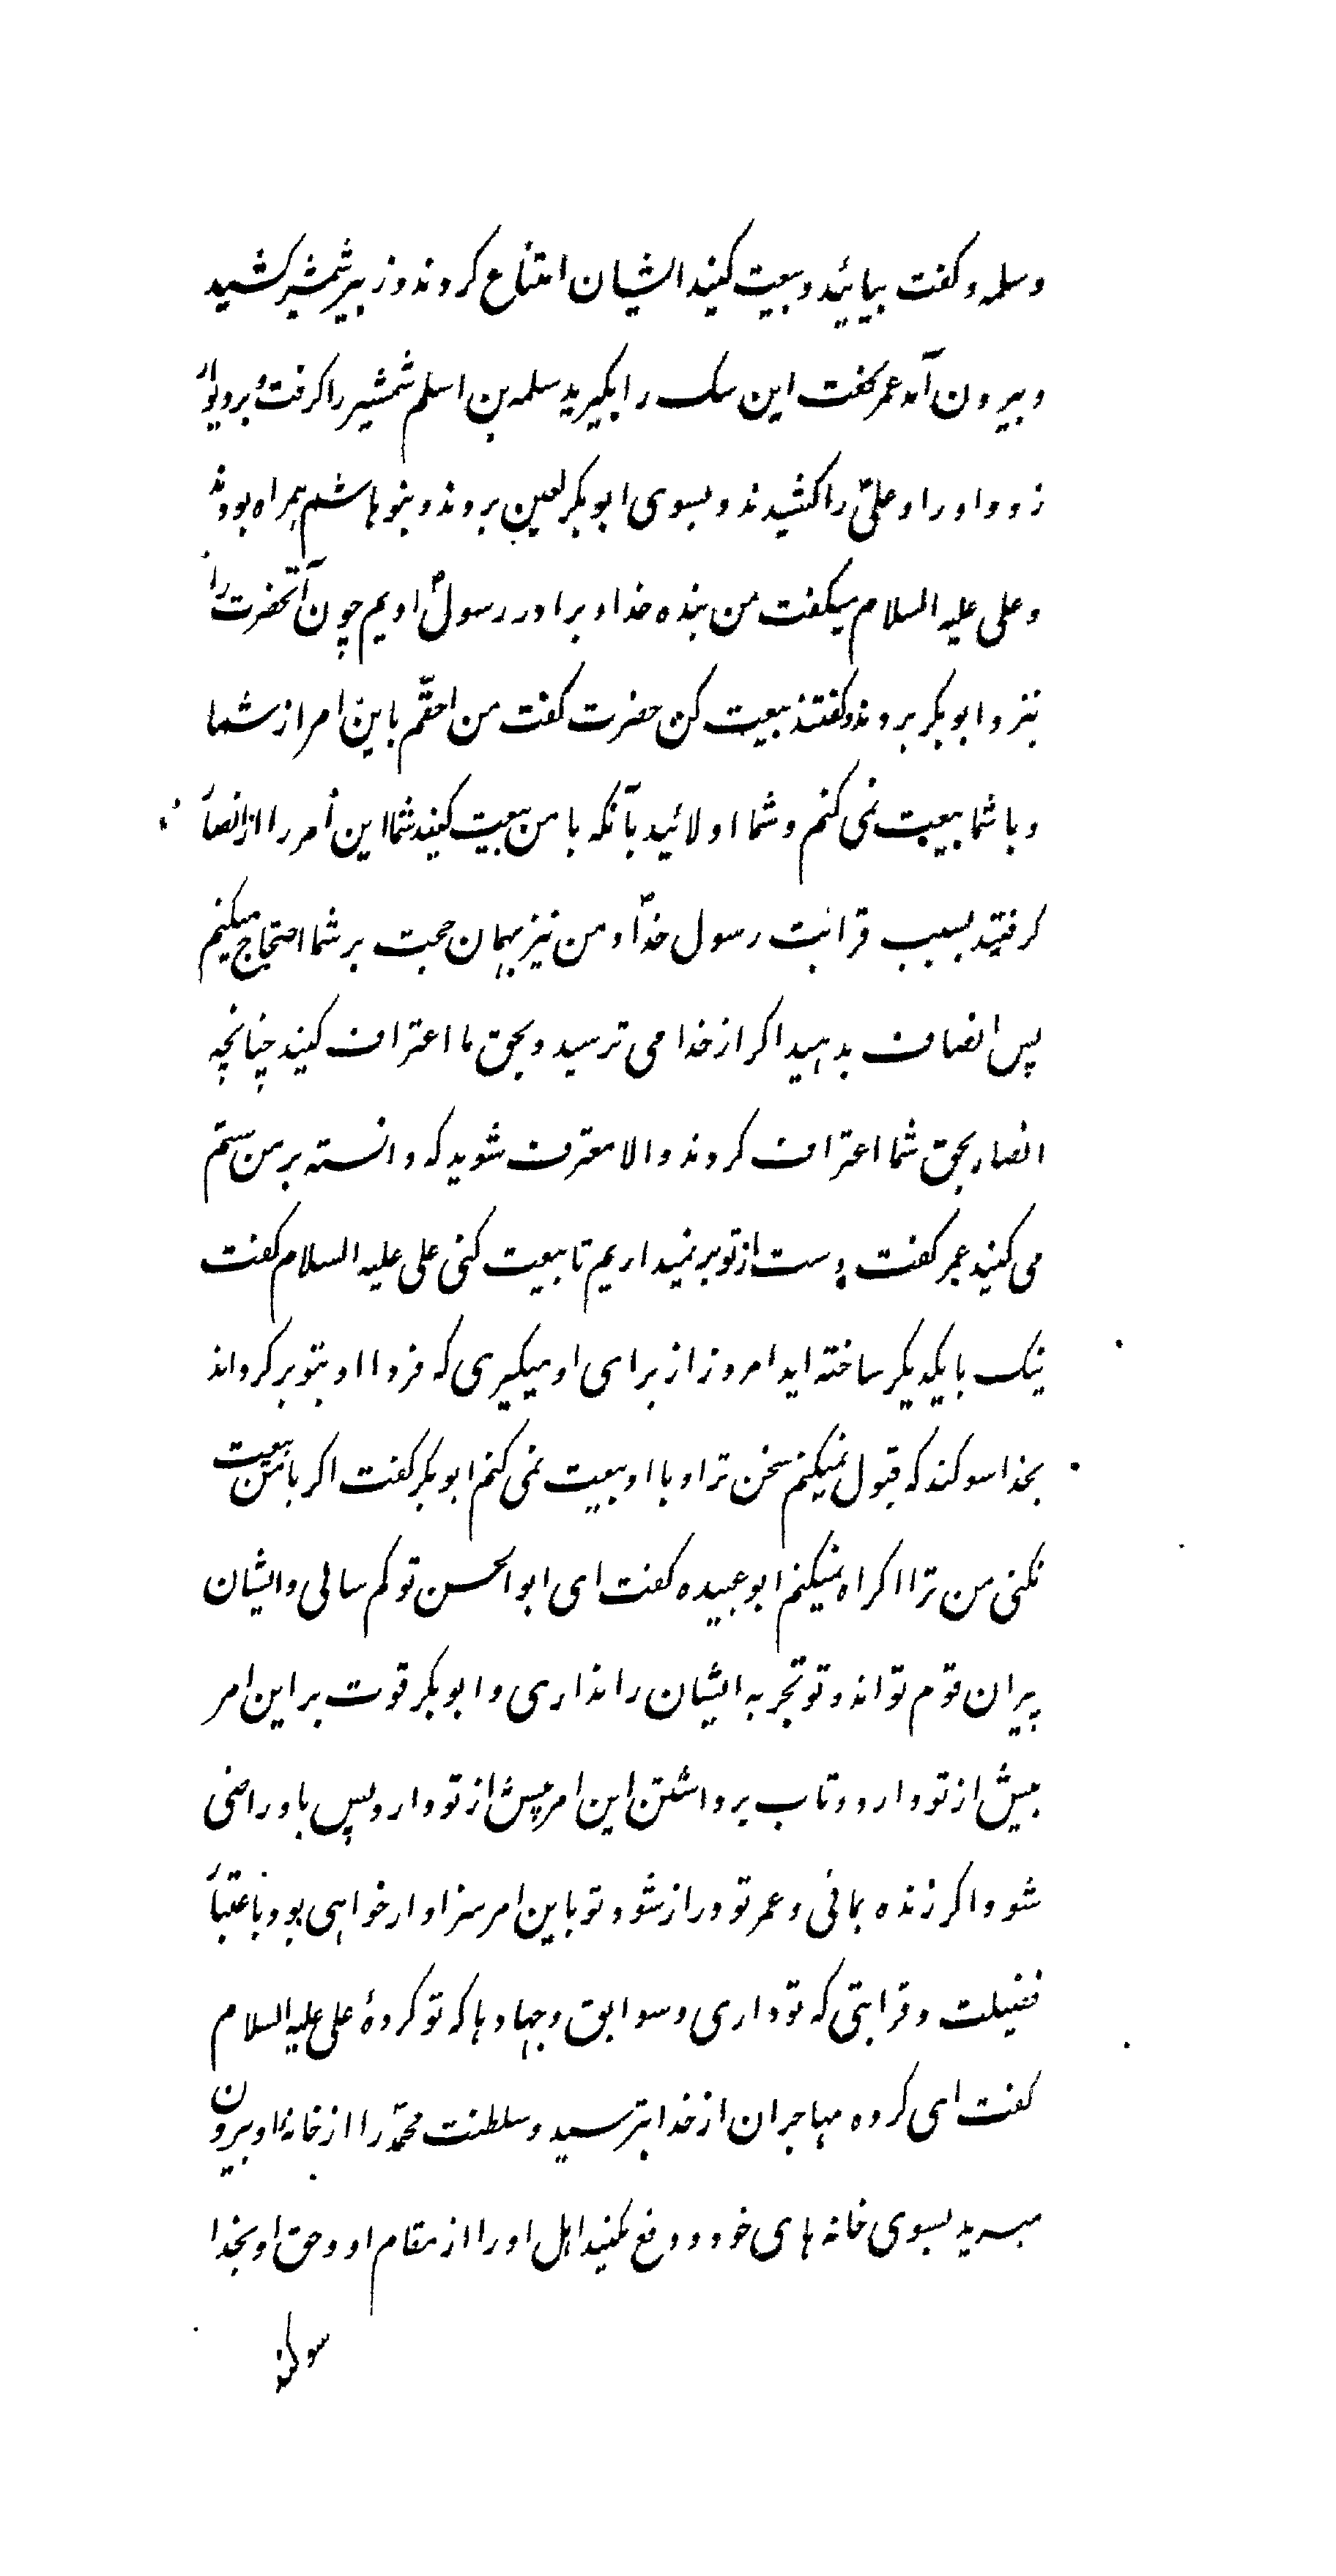 وسلمه وگفت بیائید و بیعت کنید ایشان امتناع کردند و زبیر شمشیر کشید
و بیرون آمد عمر گفت این سگ را بگیرید سلمه بن اسلم شمشیر را گرفت و بر دیوار
زد و او را و علیؑ را کشیدند و بسوی ابوبکر لعین بردند و بنو هاشم همراه بودند
و علی علیه السلام میگفت من بنده خدا و برادر رسولؐ اویم چون آنحضرت را
بنزد ابوبکر بردند و گفتند بیعت کن حضرت گفت من احقّم باین امر از شما
و با شما بیعت نمی کنم و شما اولائید بآنکه با من بیعت کنید شما این امر را از انصار
گرفتید بسبب قرابت رسول خداؐ و من نیز بهمان حجت بر شما احتجاج میکنم
پس انصاف بدهید اگر از خدا می ترسید و بحق ما اعتراف کنید چنانچه
انصار بحق شما اعتراف کردند و الا معترف شوید که دانسته بر من ستم
می کنید عمر گفت دست از تو بر نمیداریم تا بیعت کنی علی علیه السلام گفت
نیک بایکدیگر ساخته اید امروز از برای او میگیری که فردا او بتو بر گرداند
بخدا سوگند که قبول نمیکنم سخن ترا و با او بیعت نمی کنم ابوبکر گفت اگر با من بیعت
نکنی من ترا اکراه نمیکنم ابو عبیده گفت ای ابوالحسن تو کم سالی و ایشان
پیران قوم تواند و تو تجربه ایشان را نداری و ابوبکر قوت بر این امر
بیش از تو دارد و تاب برداشتن این امر بیش از تو دارد پس باو راضی
شو و اگر زنده بمانی و عمر تو دراز شود تو باین امر سزاوار خواهی بود باعتبار
فضیلت و قرابتی که تو داری و سوابق و جهادها که تو کردهٔ علی علیه السلام
گفت ای گروه مهاجران از خدا بترسید و سلطنت محمدؐ را از خانهٔ او بیرون
مبرید بسوی خانه های خود و دفع مکنید اهل او را از مقام او و حق او بخدا
سوگند